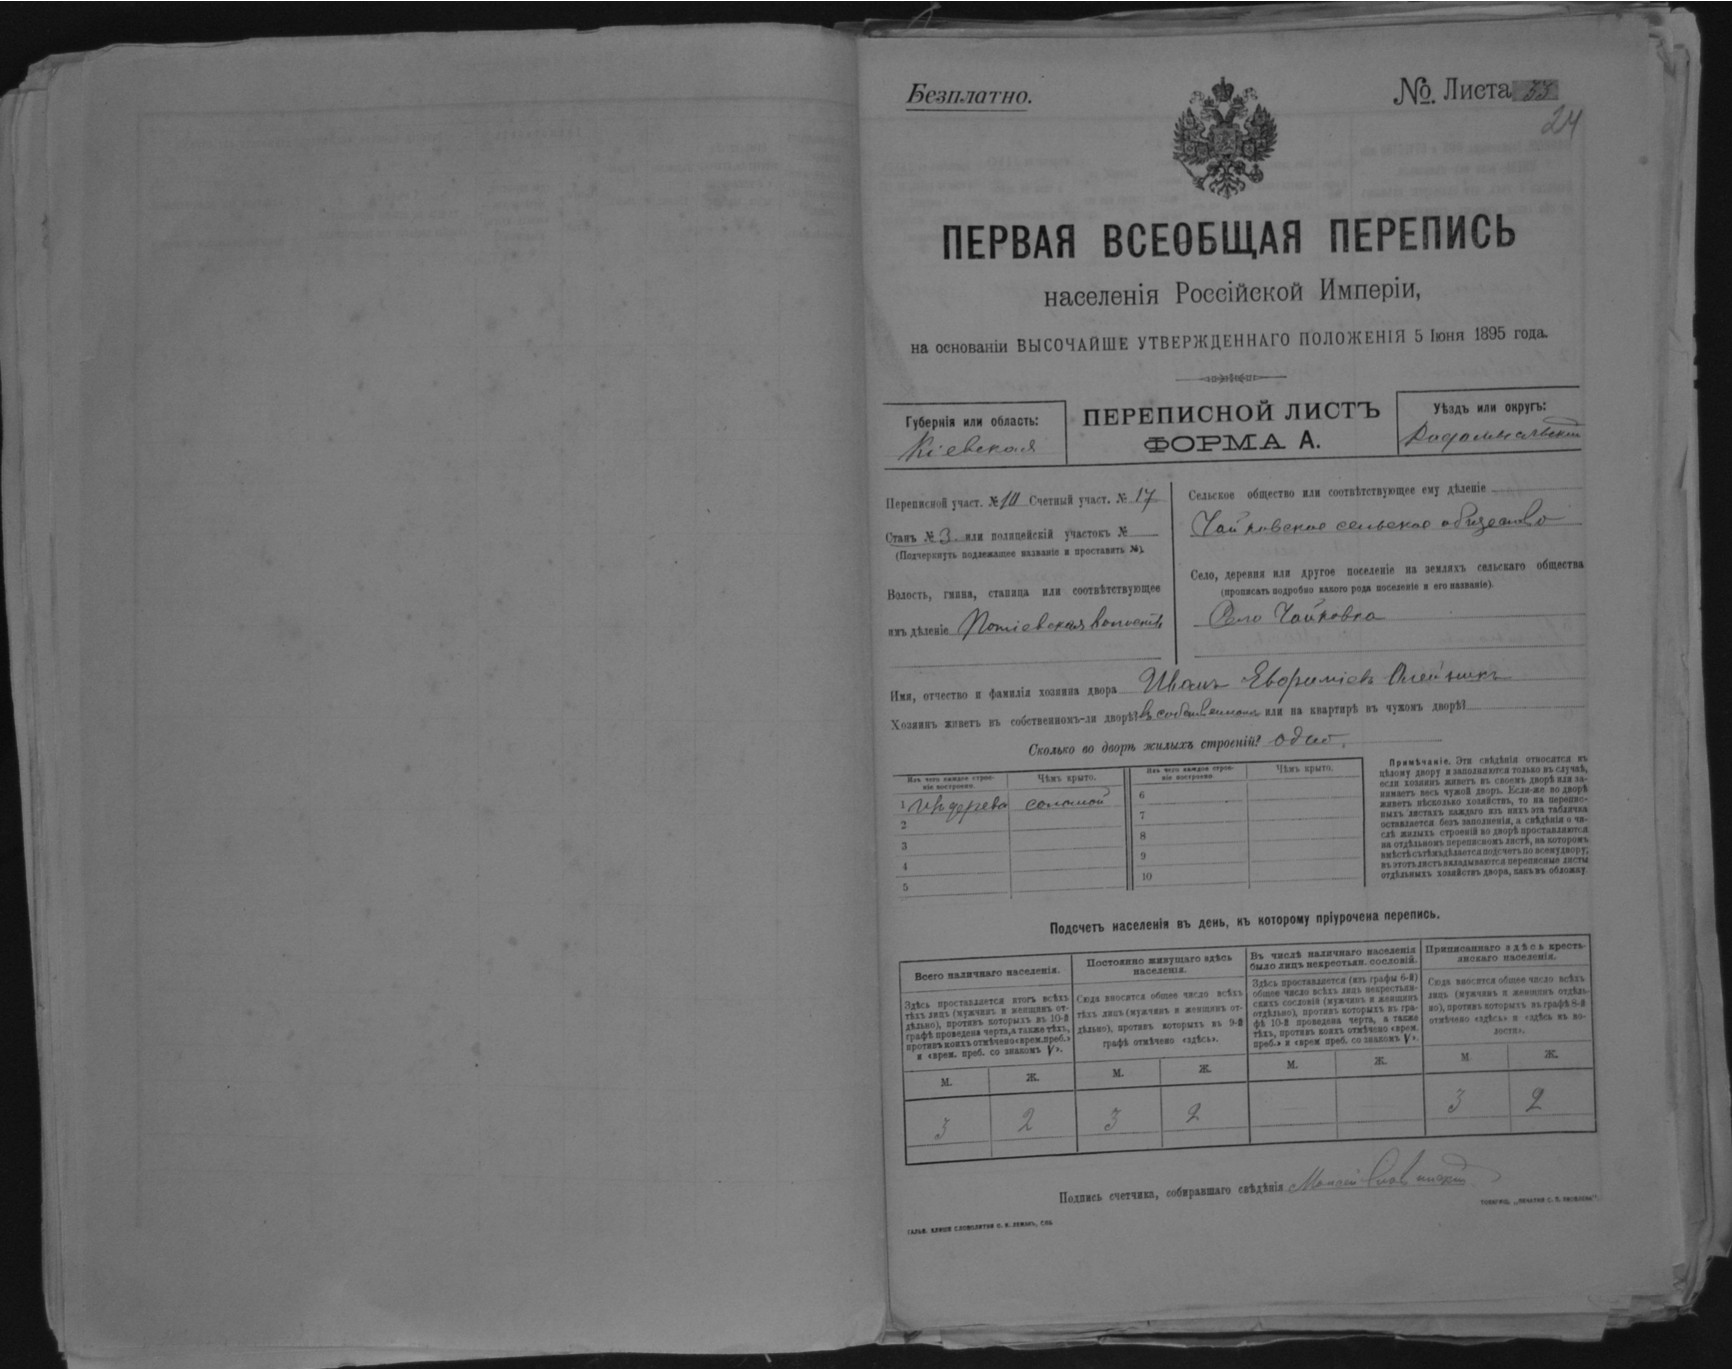 Безплатно.
№ Листа 33
24
ПЕРВАЯ ВСЕОБЩАЯ ПЕРЕПИСЬ
населенія Россійской Имперіи,
на основаніи ВЫСОЧАЙШЕ УТВЕРЖДЕННАГО ПОЛОЖЕНІЯ 5 Іюня 1895 года.
Губернія или область:
Кіевская
ПЕРЕПИСНОЙ ЛИСТЪ
ФОРМА А.
Уѣздъ или округъ:
Радомысльскій
Переписной участ. № 10 Счетный участ. № 17
Станъ № 3. или полицейскій участокъ №
(Подчеркнуть подлежащее названіе и проставить №).
Волость, гмина, станица или соотвѣтствующее
имъ дѣленіе Потіевская волость
Сельское общество или соотвѣтствующее ему дѣленіе
Чайковское сельское общество
Село, деревня или другое поселеніе на земляхъ сельскаго общества
(прописать подробно какого рода поселеніе и его названіе).
Село Чайковка
Имя, отчество и фамилія хозяина двора Иванъ Евфиміевъ Олейникъ
Хозяинъ живетъ въ собственномъ-ли дворѣ? въ собственномъ или на квартирѣ въ чужомъ дворѣ?
Сколько во дворѣ жилыхъ строеній? одно.
Изъ чего каждое строе-
ніе построено.
Чѣмъ крыто.
1 изъ дерева соломой
2
3
4
5
Изъ чего каждое строе-
ніе построено.
Чѣмъ крыто.
6
7
8
9
10
Примѣчаніе. Эти свѣдѣнія относятся къ
цѣлому двору и заполняются только въ случаѣ,
если хозяинъ живетъ въ своемъ дворѣ или за-
нимаетъ весь чужой дворъ. Если-же во дворѣ
живетъ нѣсколько хозяйствъ, то на перепис-
ныхъ листахъ каждаго изъ нихъ эта табличка
оставляется безъ заполненія, а свѣдѣнія о чи-
слѣ жилыхъ строеній во дворѣ проставляются
на отдѣльномъ переписномъ листѣ, на которомъ
вмѣстѣ съ тѣмъ дѣлается подсчетъ по всему двору;
въ этотъ листъ вкладываются переписные листы
отдѣльныхъ хозяйствъ двора, какъ въ обложку.
Подсчетъ населенія въ день, къ которому пріурочена перепись.
Всего наличнаго населенія.
Здѣсь проставляется итогъ всѣхъ
тѣхъ лицъ (мужчинъ и женщинъ от-
дѣльно), противъ которыхъ въ 10-й
графѣ проведена черта, а также тѣхъ,
противъ коихъ отмѣчено «врем. преб.»
и «врем. преб. со знакомъ V».
М. Ж.
3 2
Постоянно живущаго здѣсь
населенія.
Сюда вносится общее число всѣхъ
тѣхъ лицъ (мужчинъ и женщинъ от-
дѣльно), противъ которыхъ въ 9-й
графѣ отмѣчено «здѣсь».
М. Ж.
3 2
Въ числѣ наличнаго населенія
было лицъ некрестьян. сословій.
Здѣсь проставляется (изъ графы 6-й)
общее число всѣхъ лицъ некрестьян-
скихъ сословій (мужчинъ и женщинъ
отдѣльно), противъ которыхъ въ гра-
фѣ 10-й проведена черта, а также
тѣхъ, противъ коихъ отмѣчено «врем.
преб.» и «врем преб. со знакомъ V».
М. Ж.
Приписаннаго здѣсь кресть-
янскаго населенія.
Сюда вносится общее число всѣхъ
лицъ (мужчинъ и женщинъ отдѣль-
но), противъ которыхъ въ графѣ 8-й
отмѣчено «здѣсь» и «здѣсь въ во-
лости».
М. Ж.
3 2
Подпись счетчика, собиравшаго свѣдѣнія